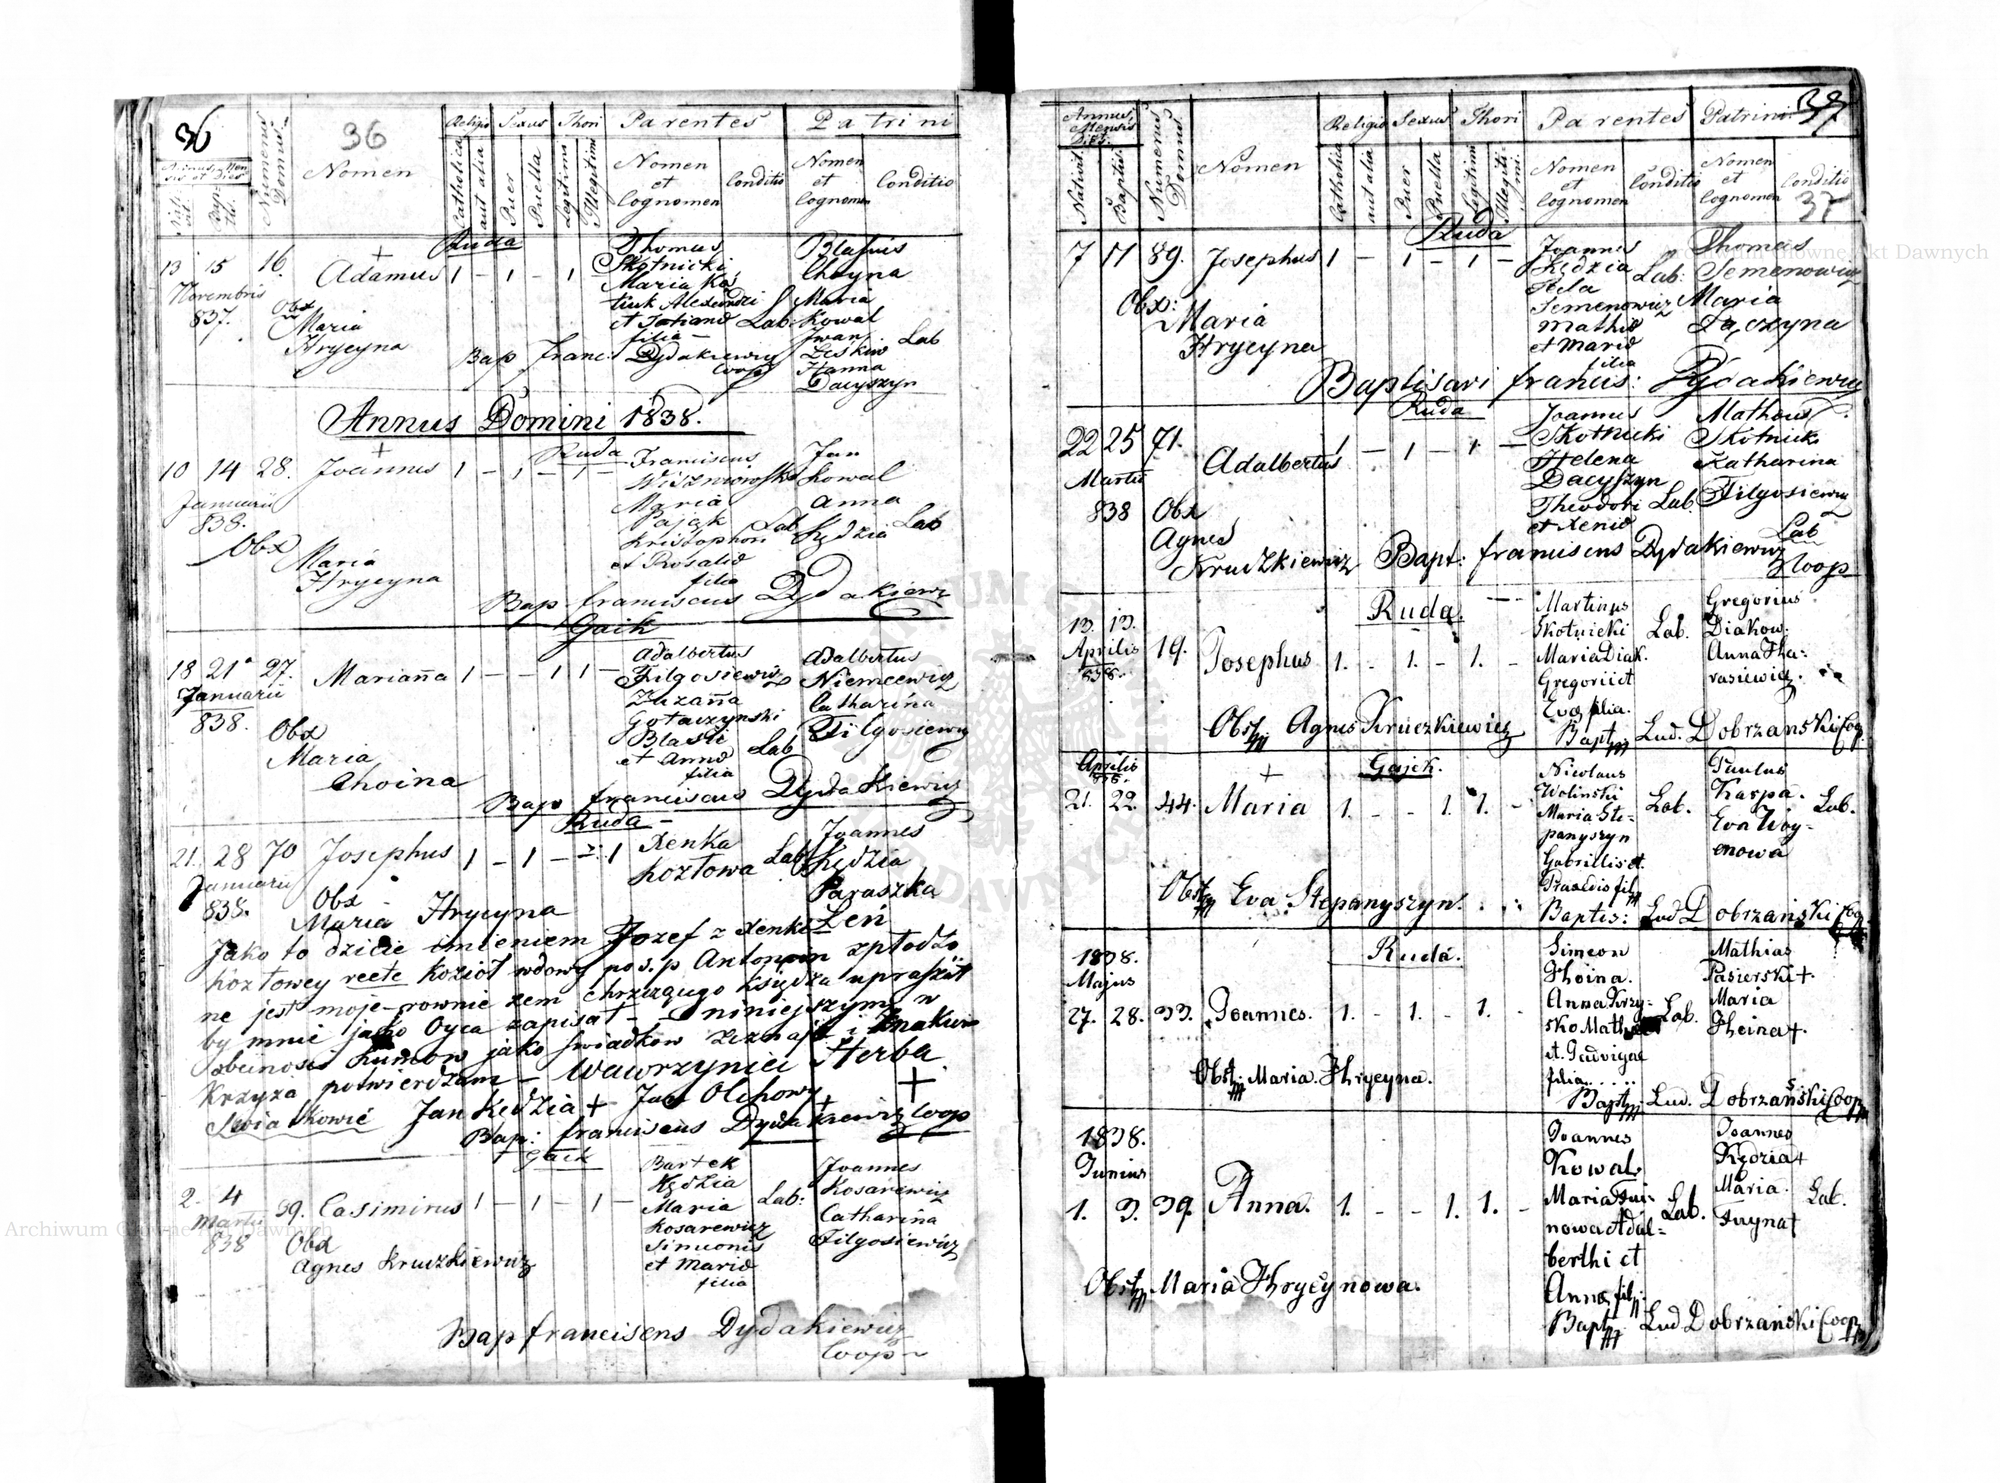 36
36
Religio Sexus Thori Parentes Patrini
Numerus Domus
Nomen
Catholica
aut alia
Puer
Puella
Legitimi
Illegitimi
Nomen et Cognomen
Conditio
Nomen et Cognomen
Conditio
Ruda
13 15 16. Adamus 1 – 1 – 1
Novembris
837.
Obx
Maria
Hrycyna
Thomas
Skotnicki
Maria
et Tatiand Lab
filia
Blasius
Choyna
Maria
Kowal
Iwan
Leskiw Lab
Hanna
Dacyszyn
Bap franc: Dydakiewicz
Coop
Annus Domini 1838.
Ruda
10 14 28. Joannes 1 – 1 – 1 –
Januarii
838.
Obx
Maria
Hrycyna
Franciscus
Maria
Pająk
Kristophori Lab
et Rosalid
filia
Jan
Kowal
Anna
Kędzia Lab
Bap franciscus Dydakiewicz
Gaik
18 21 27. Marianna 1 – – 1 1 –
Januarii
838.
Obx
Maria
Choina
Adalbertus
Filgosiewicz
Zuzanna
Gołaczynski
Blasii
et Anna Lab
filia
Adalbertus
Niemcewicz
Catharina
Filgosiewicz
Bap franciscus Dydakiewicz
Ruda
21. 28 70 Josephus 1 – 1 – – 1
Januarii
838.
Obx
Maria Hrycyna
Xenka
Kozłowa Lab
Joannes
Kędzia
Paraszka
Zeń
Jako to dziecie imieniem Jozef z Xenki
Kozłowey recte Kozioł wdowy po s. p. Antonim zpłodzo
ne jest moje rownie zem chrzczącego Xiędza upraszał
by mnie jako Oyca zapisał – – niniejszym w
obecnosci Kumow jako swiadkow zeznaję i Znakiem
Krzyza potwierdzam – Wawrzyniec Sterba
Swiadkowie Jan Kędzia + Jan Olchowy +
+
Bap: franciscus Dydakiewicz Coop
Gaik
2 4 39. Casimirus 1 – 1 – 1 –
Martii
838
Obx
Agnes Kruczkiewicz
Bartek
Kędzia
Maria Lab:
Kosarewicz
Simeonis
et Marid
filia
Joannes
Kosarewicz
Catharina
Filgosiewicz
Bap franciscus Dydakiewicz
Coop
37
37
Annus, Mensis Dies.
Nativit
Baptis
Numerus Domus
Nomen
Religio Sexus Thori Parentes Patrini
Catholica
aut alia
Puer
Puella
Legitimi
Illegitimi
Nomen et Cognomen
Conditio
Nomen et Cognomen
Conditio
Ruda
7 11 89. Josephus 1 – 1 – 1 –
Obx:
Maria
Hrycyna
Joannes
Kędzia Lab:
Semenowicz
Mathid
et Marid
filia
Thomas
Semenowicz
Maria
Baptisavi francis: Dydakiewicz
Ruda
22 25 71. Adalbertus 1 – 1 – 1. –
Martii
838 Obx
Agnes
Kruczkiewicz
Joannes
Skotnicki
Helena
Dacyszyn
Theodori Lab
et Xenid
Matheus
Skotnicki
Katharina
Filgosiewicz
Lab
Bapt: franciscus Dydakiewicz
Coop
Ruda.
13. 13. 19. Josephus 1. – 1. – 1. –
Aprilis
838.
Martinus
Skotnicki Lab.
Maria Diak.
Gregorii et
Eva filia.
Gregorius
Diakow.
Anna Tha-
rasiewicz.
Obst. Agnes Kruczkiewicz
Bapt. Lud. Dobrzański Coop.
Aprilis
838.
Gajek.
21. 22. 44. Maria 1. – – 1. 1. –
Nicolaus
Wolinski Lab.
Maria Ste-
panyszyn
Gabrielis et
Paulus
Kaspa. Lab.
Eva Woy-
Obst. Eva Stepanyszyn.
Baptis: Lud Dobrzański Coop
1838.
Majus
Ruda.
27. 28. 33. Joannes. 1. – 1. – 1. –
Simeon
Choina.
Anna Krzy-
sko Lab.
et Hedvigae
filia.
Mathias
Pasierski +
Maria
Obst. Maria Hrycyna.
Bapt. Lud. Dobrzański Coop
1838.
Junius
1. 3. 39 Anna. 1. – – 1. 1. –
Joannes
Kowal.
Maria
nowa Adal- Lab.
berthi et
Anna fil.
Joannes
Kędzia +
Maria. Lab.
Obst. Maria Hrycynowa.
Bapt. Lud Dobrzański Coop
Archiwum Główne Akt Dawnych
Archiwum Główne Akt Dawnych